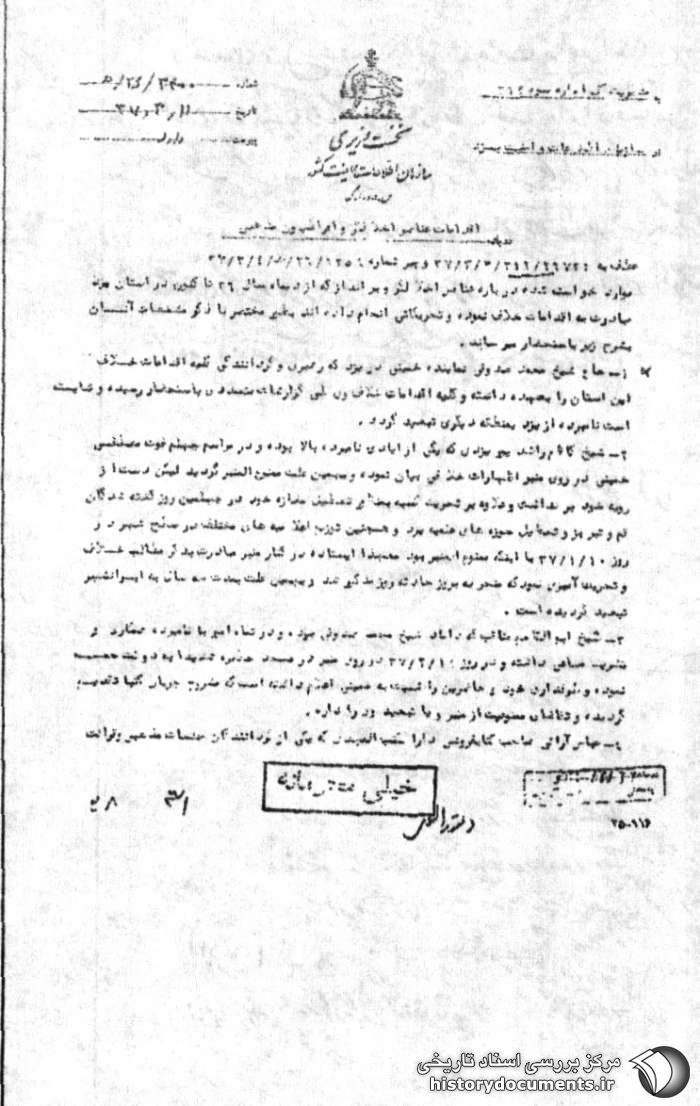 شماره
تاریخ
پیوست
نخست وزیری
سازمان اطلاعات و امنیت کشور
به مدیریت کل اداره سوم ۳۱۲
از سازمان اطلاعات و امنیت یزد
اقدامات عناصر اخلالگر و
عطف به
موارد خواسته شده درباره عناصر اخلالگر و برانداز که از دیماه سال ۳۶ تا کنون در استان یزد
مبادرت به اقدامات خلاف نموده و تحریکاتی انجام داده اند بطور مختصر با ذکر مشخصات آنسان
بشرح زیر باستحضار میرساند.
حاج شیخ محمد صدوقی نماینده خمینی در یزد که رهبری و گردانندگی کلیه اقدامات خلاف
این استان را بعهده داشته و کلیه اقدامات خلاف وی طی گزارشات متعددی باستحضار رسیده و شایسته
است نامبرده از یزد بمنطقه دیگری تبعید گردد.
۲- شیخ کاظم راشد یزدی که یکی از ایادی نامبرده بالا بوده و در مراسم چهلم فوت مصطفی
خمینی در روی منبر اظهارات خلافی بیان نموده و بهمین علت ممنوع المنبر گردید لیکن دست از
رویه خود بر نداشت و علاوه بر تحریک کسبه تعطیل مغازه خود در چهلمین روز کشته شدگان
قم و تبریز و تعطیل حوزه های علمیه یزد و همچنین توزیع اعلامیه های مختلف در سطح شهر در
روز ۳۷/۱/۱۰ با اینکه ممنوع المنبر بود معهذا ایستاده در کنار منبر مبادرت بذکر مطالب خلاف
و تحریک آمیزی نمود که منجر به بروز حادثه روز مذکور شد و بهمین علت بمدت سه سال به ایرانشهر
تبعید گردیده است.
۳- شیخ ابوالقاسم که داماد شیخ محمد صدوقی بوده و در تمام امور با نامبرده همکاری و
تشریک مساعی داشته و در روز ۳۷/۲/۱۰ در روی منبر در مسجد حظیره شدیدا به دولت حمله
نموده و طرفداری خود و حاضرین را نسبت به خمینی اعلام داشته است که مشروح جریان کتبا تقدیم
گردیده و تقاضای ممنوعیت از منبر و یا تبعید وی را دارد.
۴- عباس صاحب کتابفروشی که یکی از گردانندگان جلسات مذهبی و قرائت
خیلی محرمانه
۲۵-۱۱۶
مرکز بررسی اسناد تاریخی
historydocuments.ir